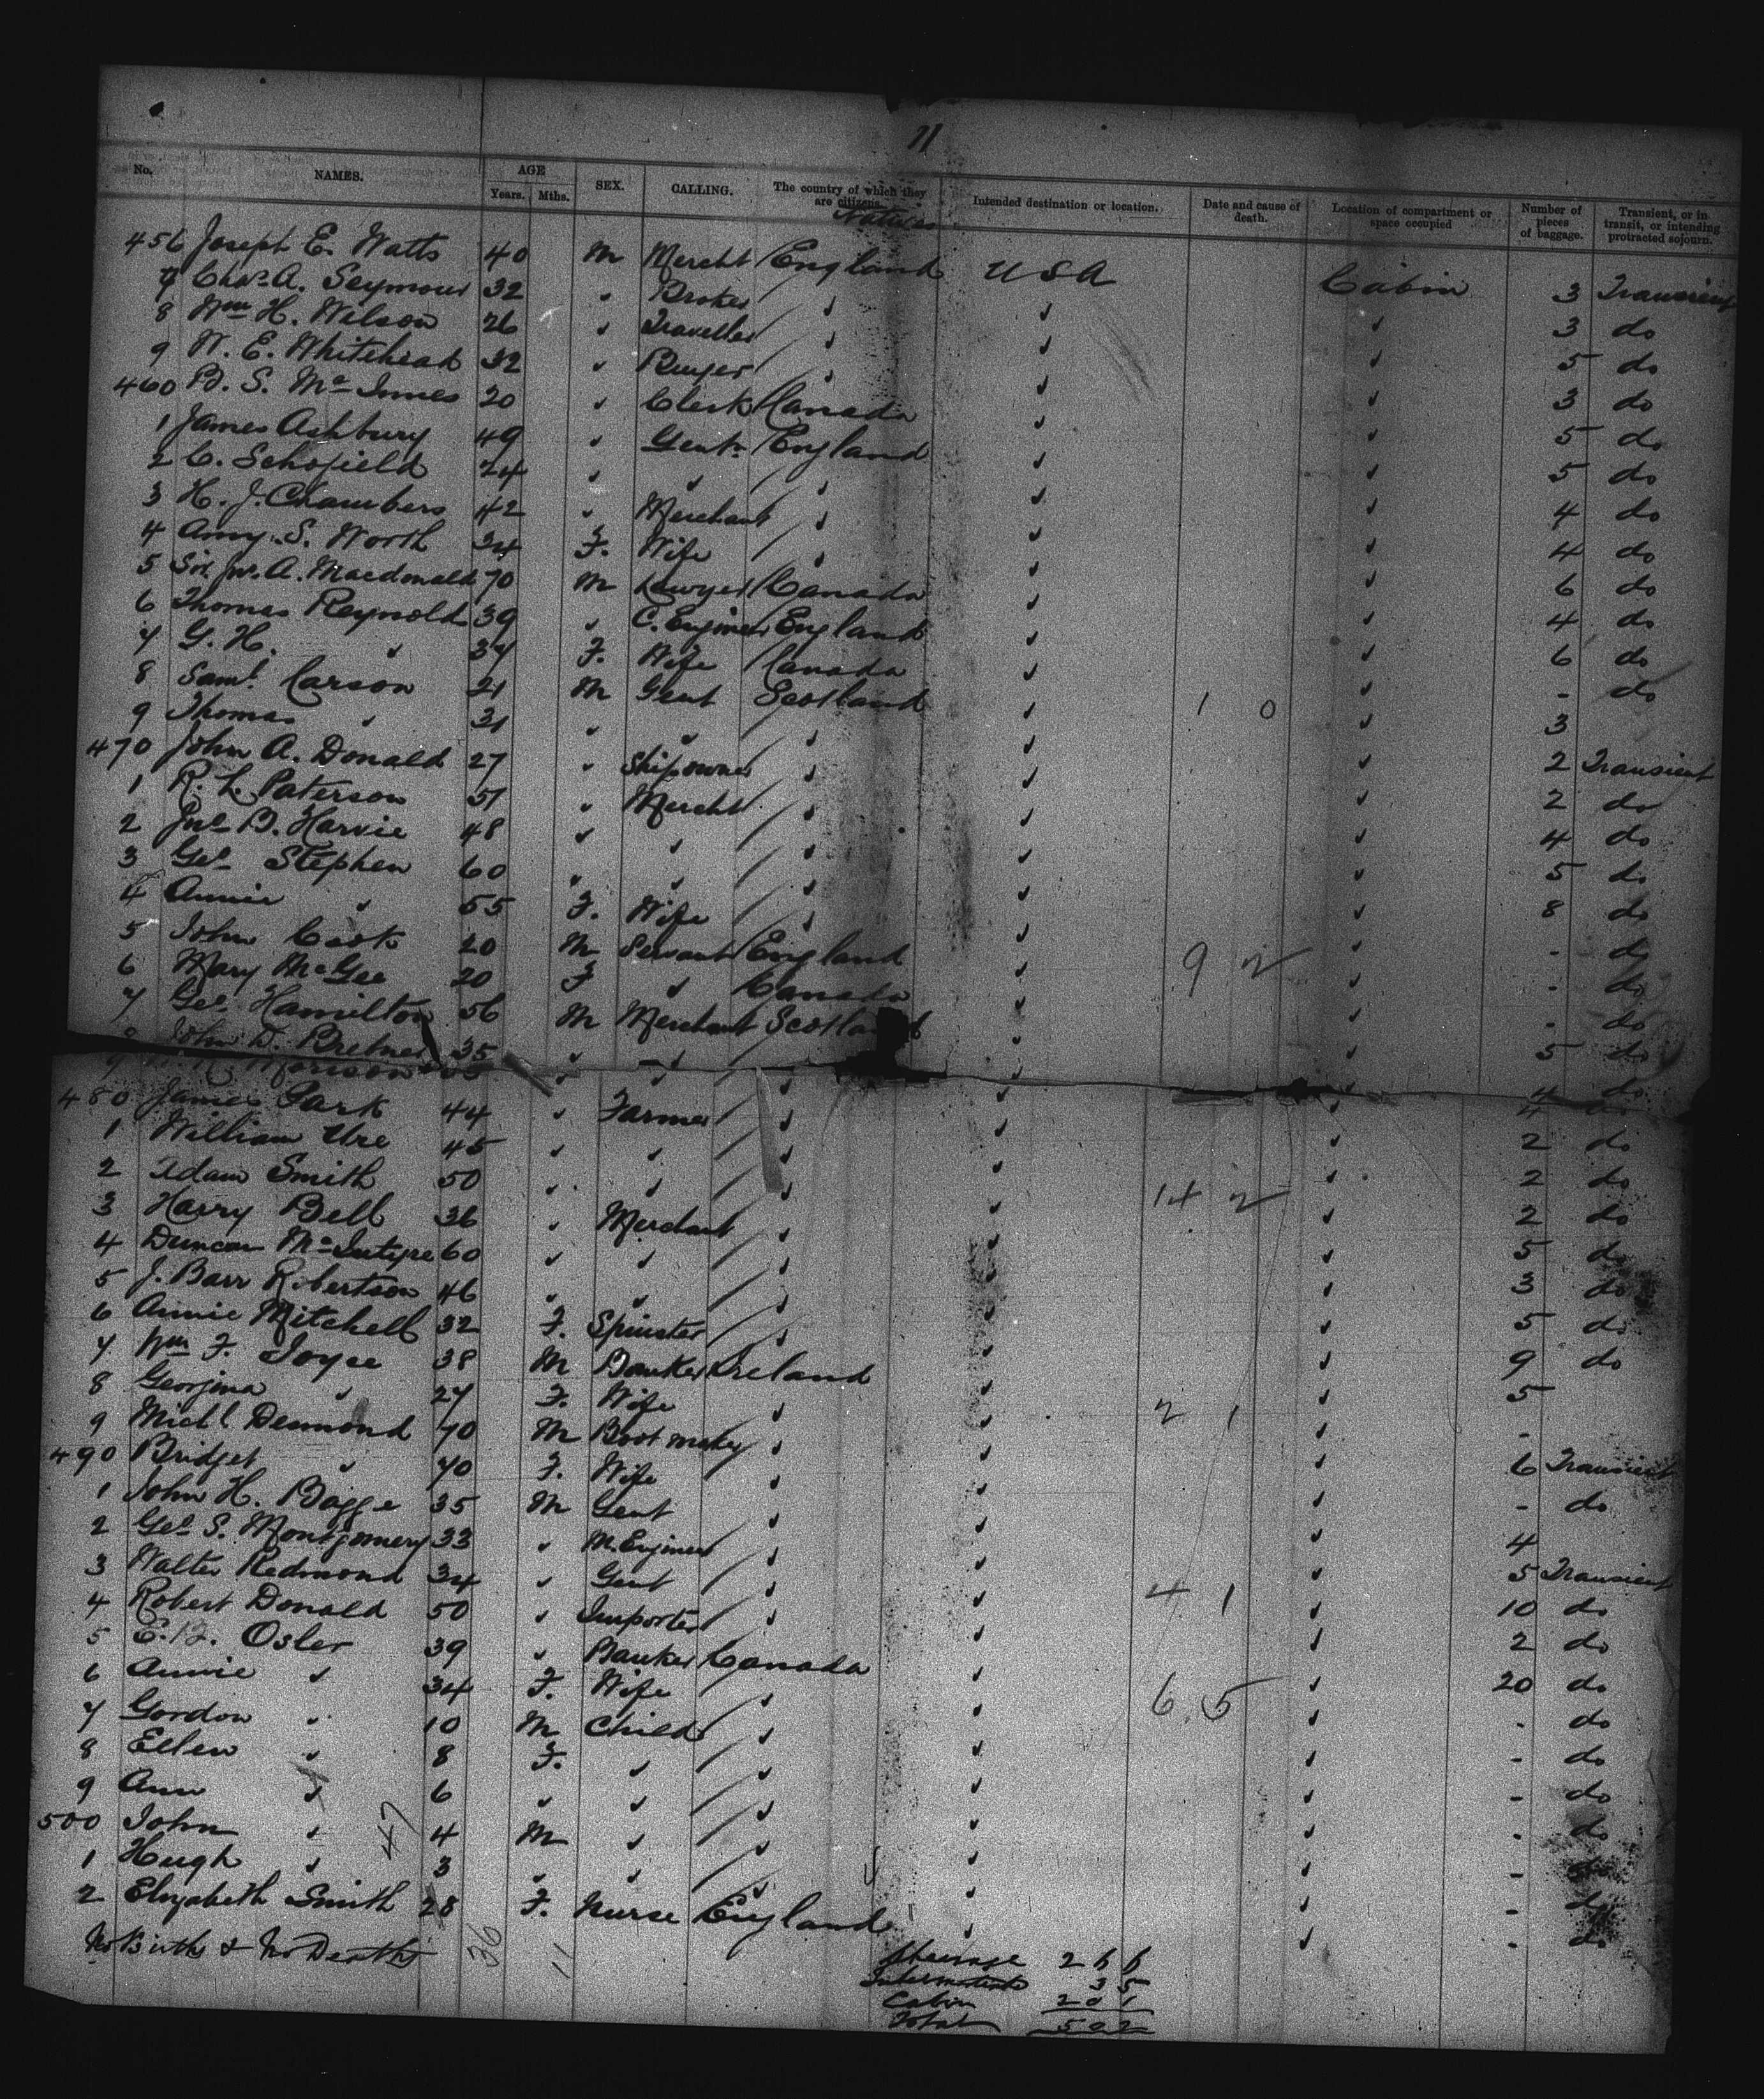 11
No. NAMES. AGE Years. Mths. SEX. CALLING. The country of which they are citizens. Natives Intended destination or location. Date and cause of death. Location of compartment or space occupied Number of pieces of baggage. Transient, or in transit, or intending protracted sojourn.
456 Joseph E. Watts 40 M Mercht England USA Cabin 3 Transient
7 Chas. A. Seymour 32 " Broker " " " 3 do
8 Wm H. Wilson 26 " Traveller " " " 5 do
9 W. E. Whitehead 32 " Buyer " " " 3 do
460 B. S. McInnes 20 " Clerk Canada " " 5 do
1 James Ashbury 49 " Gentn England " " 5 do
2 C. Schofield 24 " " " " " 4 do
3 H. J. Chambers 42 " Merchant " " " 4 do
4 Amy S. Worth 34 F. Wife " " " 6 do
5 Sir Jno. A. Macdonald 70 M Lawyer Canada " " 4 do
6 Thomas Reynolds 39 " C. Engineer England " " 6 do
7 G. H. " 37 F. Wife Canada " " - do
8 Saml. Carson 21 M Gent Scotland " 1 0 " 3
9 Thomas " 31 " " " " " 2 Transient
470 John A. Donald 27 " Shipowner " " " 2 do
1 R. L. Paterson 51 " Mercht " " " 4 do
2 Jno B. Harvie 48 " " " " " 5 do
3 Geo Stephen 60 " " " " " 8 do
4 Annie " 55 F. Wife " " " - do
5 John Cook 20 M Servant England " 9 2 " - do
6 Mary McGee 20 F " Canada " " - do
7 Geo. Hamilton 56 M Merchant Scotland " " 5 do
8 John D. 35 " " " " " 4 do
9 Morison " " " " " 4 do
480 James Park 44 " Farmer " " " 2 do
1 William Ure 45 " " " " " 2 do
2 Adam Smith 50 " " " " 14 2 " 2 do
3 Harry Bell 36 " Merchant " " " 5 do
4 Duncan McIntyre 60 " " " " " 3 do
5 J. Barr Robertson 46 " " " " " 5 do
6 Annie Mitchell 32 F. Spinster " " " 9 do
7 Wm F. Joyce 38 M Banker Ireland " " 5
8 Georgina " 27 F. Wife " " 2 1 " -
9 Michl Desmond 70 M Bootmaker " " " 6 Transient
490 Bridget " 70 F. Wife " " " - do
1 John H. Bagge 35 M Gent " " " 4
2 Geo S. Montgomery 33 " M. Engineer " " " 5 Transient
3 Walter Redmond 34 " Gent " " 4 1 " 10 do
4 Robert Donald 50 " Importer " " " 2 do
5 E. B. Osler 39 " Banker Canada " " 20 do
6 Annie " 34 F. Wife " " 6 5 " - do
7 Gordon " 10 M Child " " " - do
8 Ellen " 8 F. " " " " - do
9 Ann " 6 " " " " " - do
500 John " 4 M " " " " - do
1 Hugh " 3 " " " " " - do
2 Elizabeth Smith 28 F. Nurse England " " - do
47
No Births & No Deaths 36 11
Steerage 266
Intermediate 35
Cabin 201
Total 502